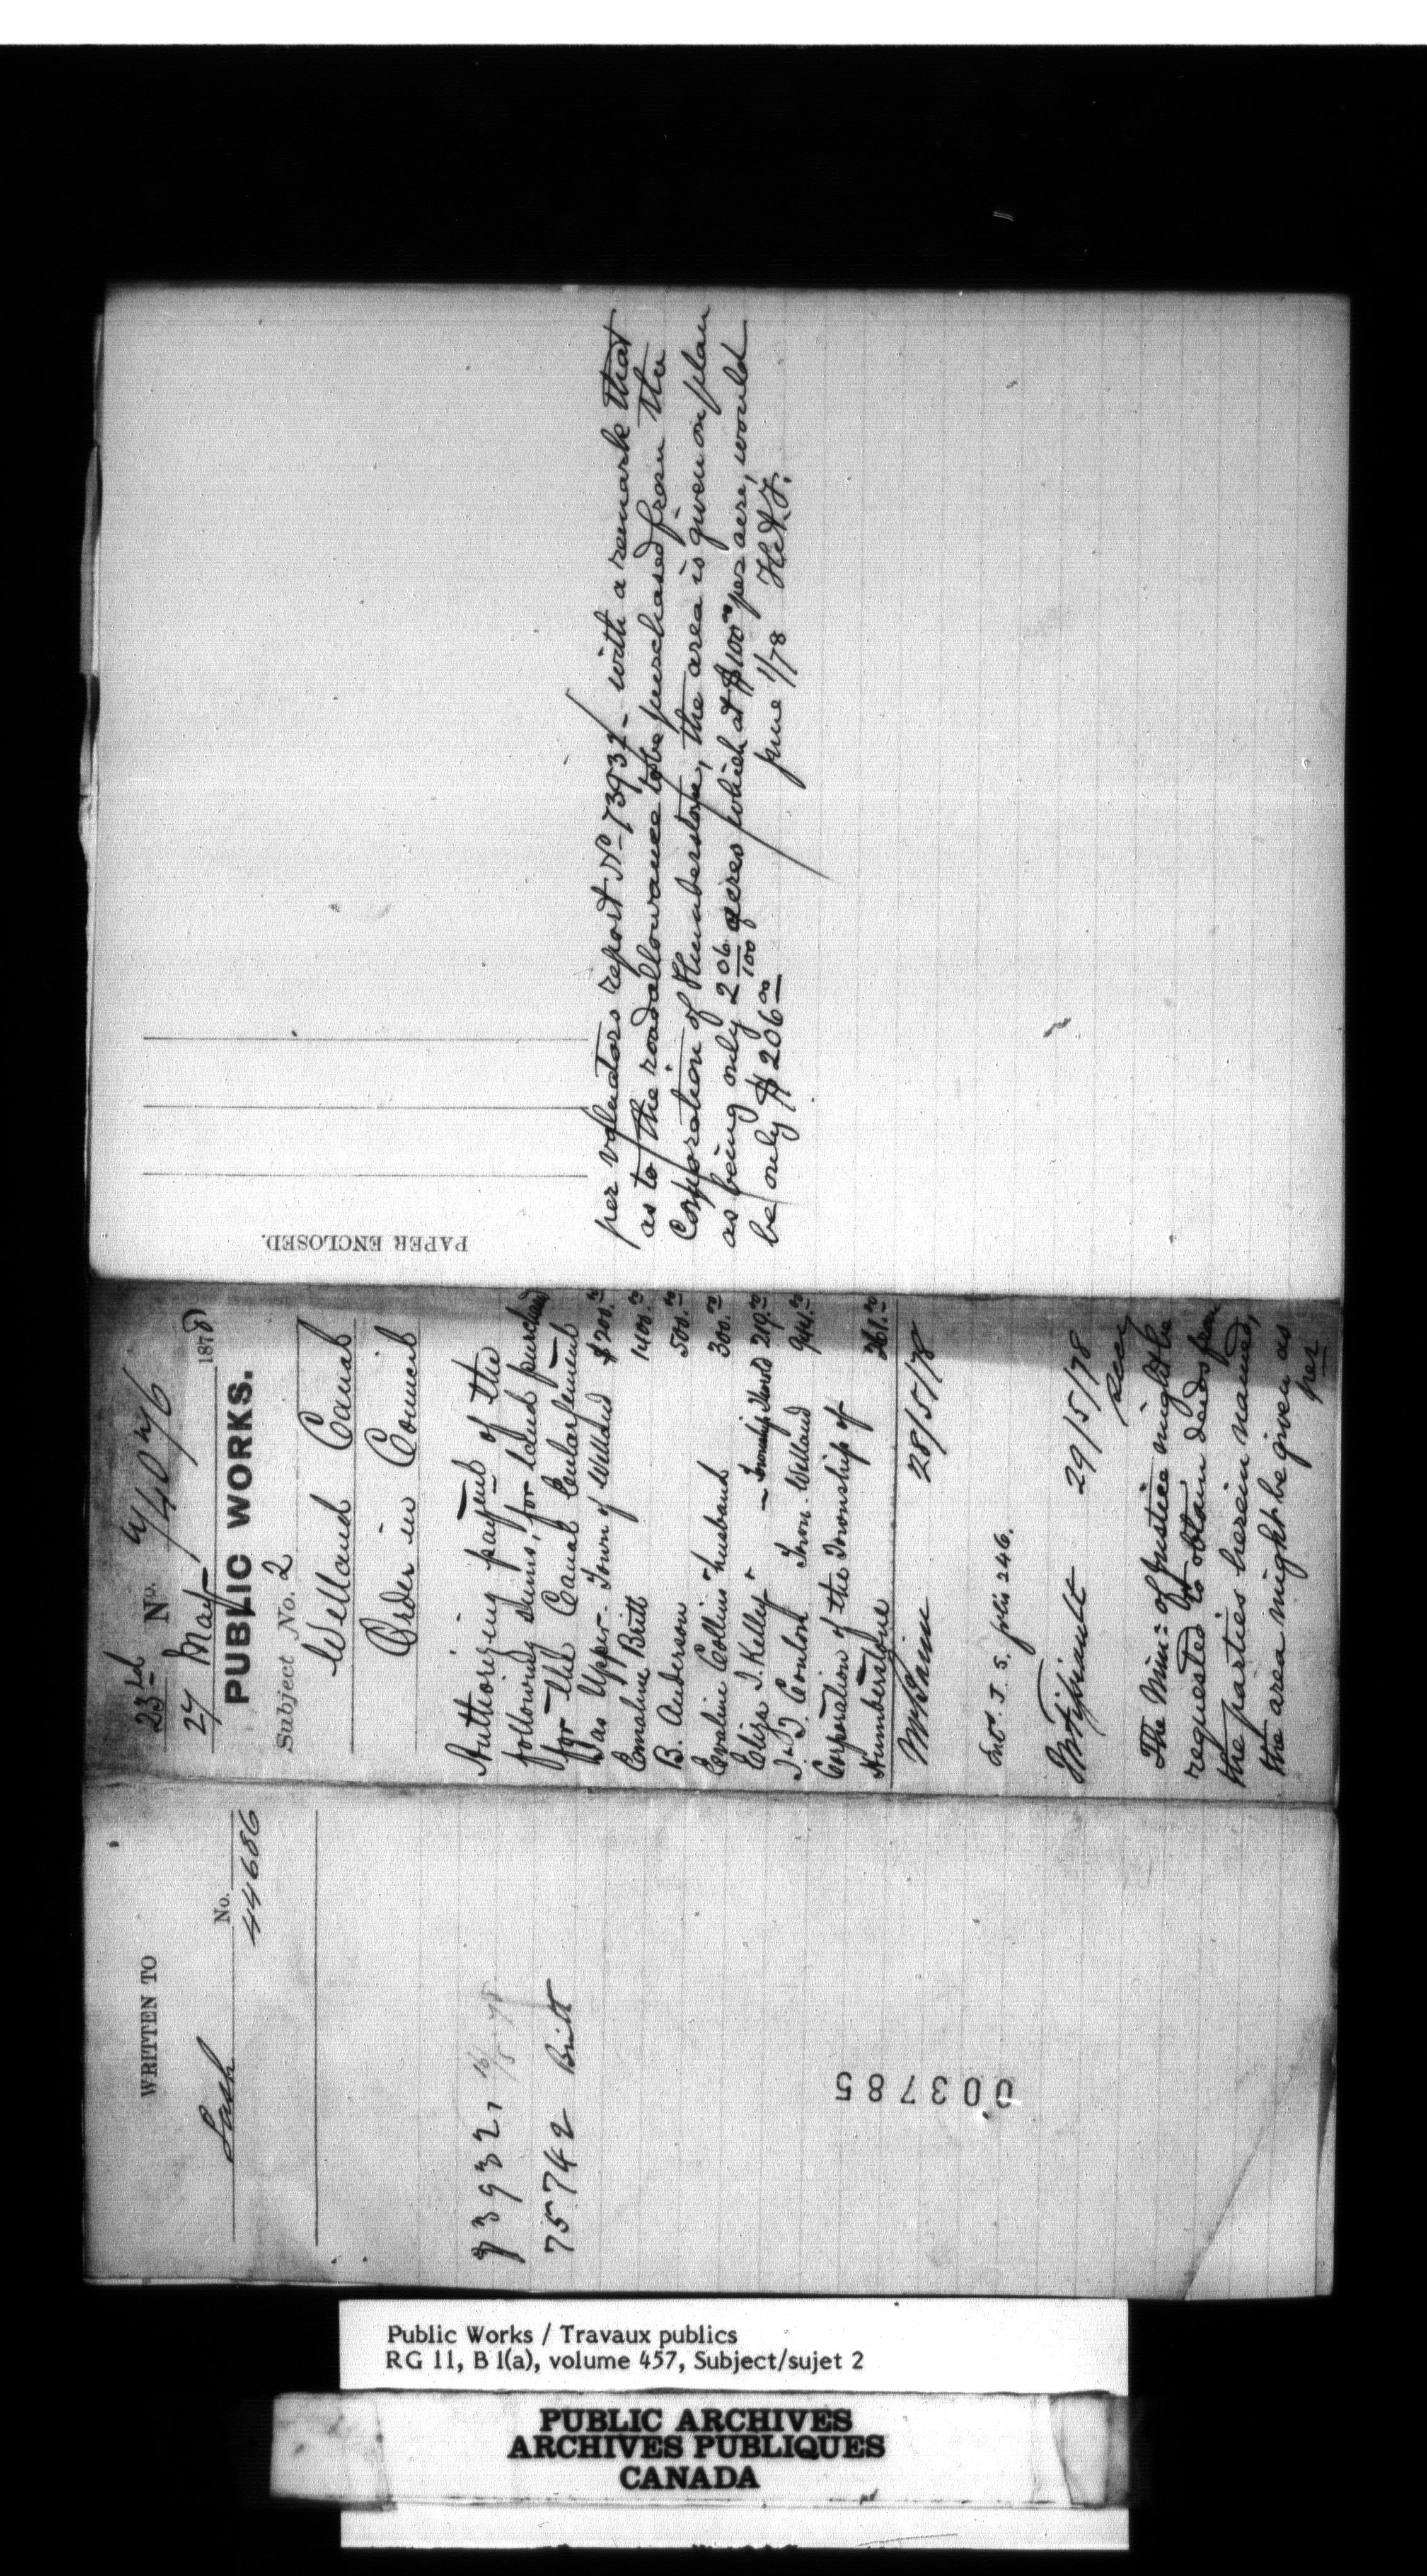 WRITTEN TO
No.
Lash
44686
73932, 16/5 78
75742 Britt
003785
23rd No. 74076
27 May 1878
PUBLIC WORKS.
Subject No. 2
Welland Canal
Order in Council
Authorizing payment of the
following sums, for land purchased
for the Canal Enlargement
Jas Upper - Town of Welland $200.00
Emaline Britt 1400.00
B. Anderson 500.00
Evaline Collins & husband 300.00
Eliza J. Kelley " - Township Thorold 219.00
Town Welland 944.00
Corporation of the Township of
Humberstone 261.00
28/5/78
Ent. J. 5. folio 246.
29/5/78
The Min: of Justice might be
requested to obtain deeds from
the parties herein named,
the area might be given as
per
PAPER ENCLOSED.
per valuators report No 73932 - with a remark that
as to the road allowance to be purchased from the
Corporation of Humberstone, the area is given on plan
as being only 2 06/100 acres which at $100.00 per acre, would
be only $206.00 June 1/78 H.A.F.
Public Works / Travaux publics
RG 11, B 1(a), volume 457, Subject/sujet 2
PUBLIC ARCHIVES
ARCHIVES PUBLIQUES
CANADA